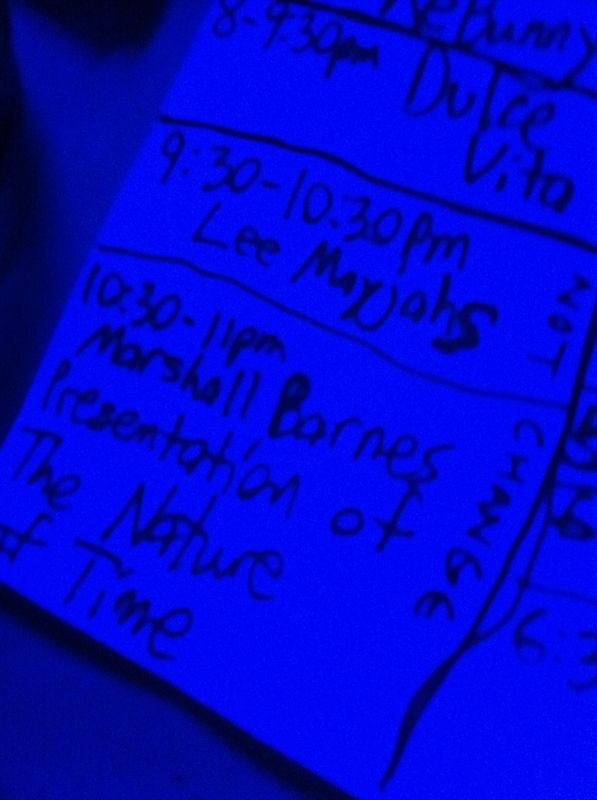 KeBunny
8-9:30pm Dulce
Vita
9:30-10:30pm
Lee Mayjahs
10:30-11pm
Marshall Barnes
Presentation of
The Nature
of Time
NOT
CHANGE
6:3